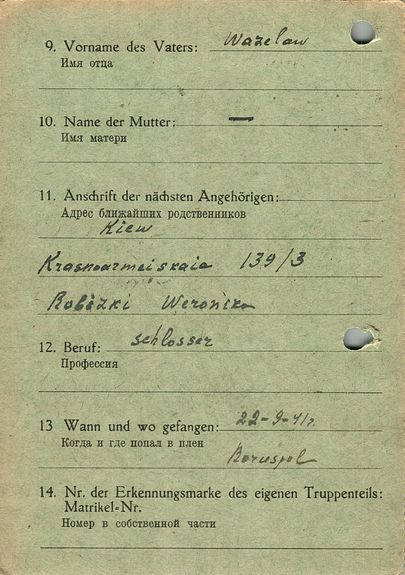 9. Vorname des Vaters: Wazelaw
Имя отца
10. Name der Mutter: —
Имя матери
11. Anschrift der nächsten Angehörigen:
Адрес ближайших родственников
Kiew
Krasnoarmeiskaia 139/3
Robizki Weronika
12. Beruf: Schlosser
Профессия
13 Wann und wo gefangen: 22-9-41г.
Когда и где попал в плен
Boruspol
14. Nr. der Erkennungsmarke des eigenen Truppenteils:
Matrikel-Nr.
Номер в собственной части